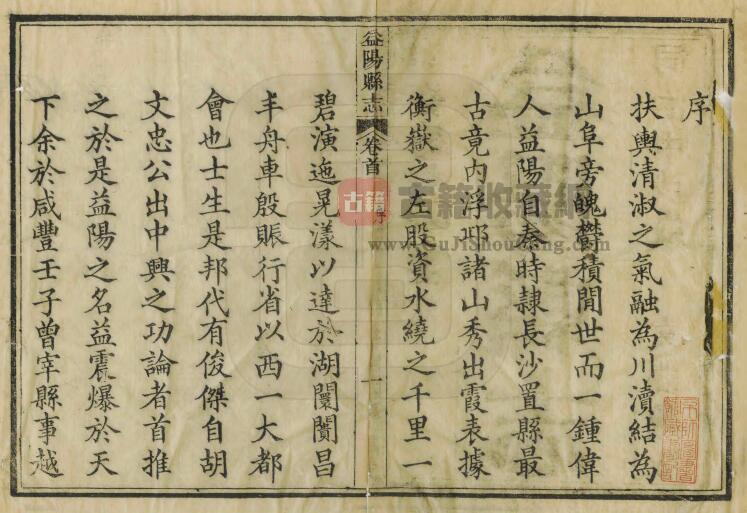 序
扶輿清淑之氣融為川瀆結為
山阜旁魄鬱積閒世而一鍾偉
人益陽自秦時隸長沙置縣最
古竟內浮邱諸山秀出霞表據
衡嶽之左股資水繞之千里一
益陽縣志 卷首 序 一
碧演迤晃漾以達於湖闤闠昌
丰舟車殷賑行省以西一大都
會也士生是邦代有俊傑自胡
文忠公出中興之功論者首推
之於是益陽之名益震爆於天
下余於咸豐壬子曾宰縣事越
古籍
古籍收藏網
www.GuJiShouCang.com